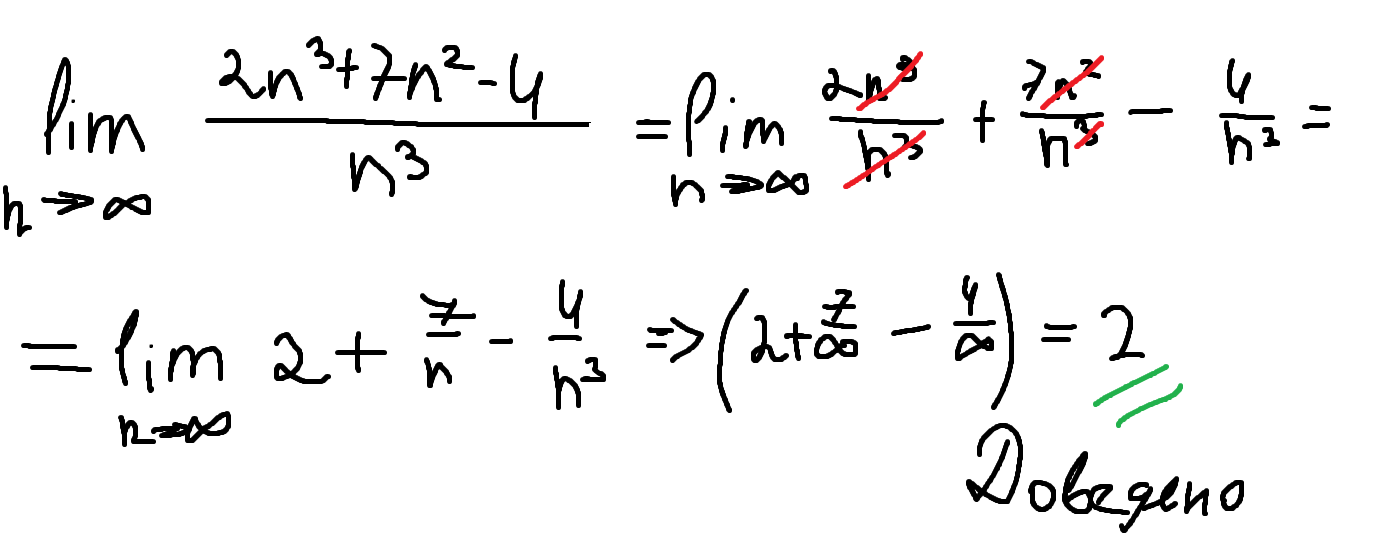 lim n→∞ (2n³+7n²-4)/n³ = lim n→∞ 2n³/n³ + 7n²/n³ - 4/n³ =
= lim n→∞ 2 + 7/n - 4/n³ => (2 + 7/∞ - 4/∞) = 2
Доведено